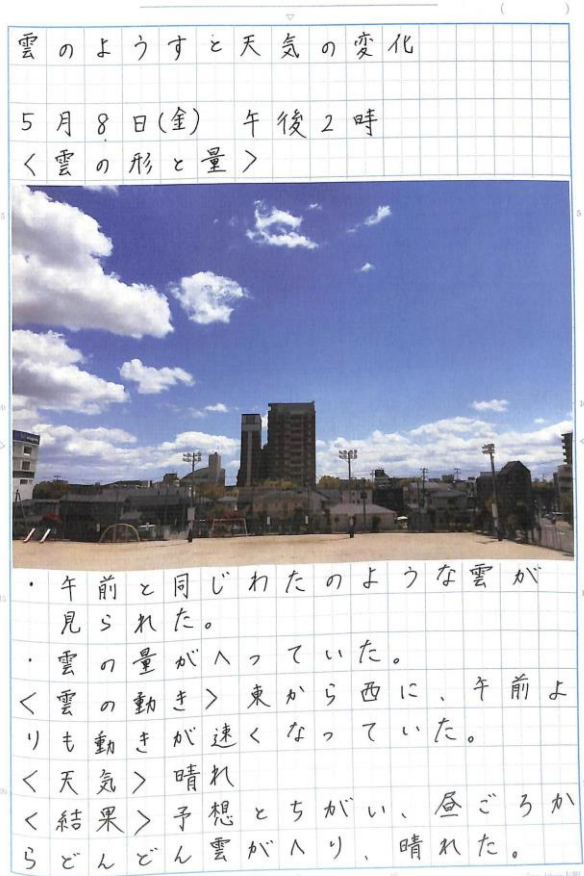 雲のようすと天気の変化
5月8日(金) 午後2時
<雲の形と量>
・午前と同じわたのような雲が
見られた。
・雲の量がへっていた。
<雲の動き>東から西に、午前よ
りも動きが速くなっていた。
<天気>晴れ
<結果>予想とちがい、昼ごろか
らどんどん雲がへり、晴れた。